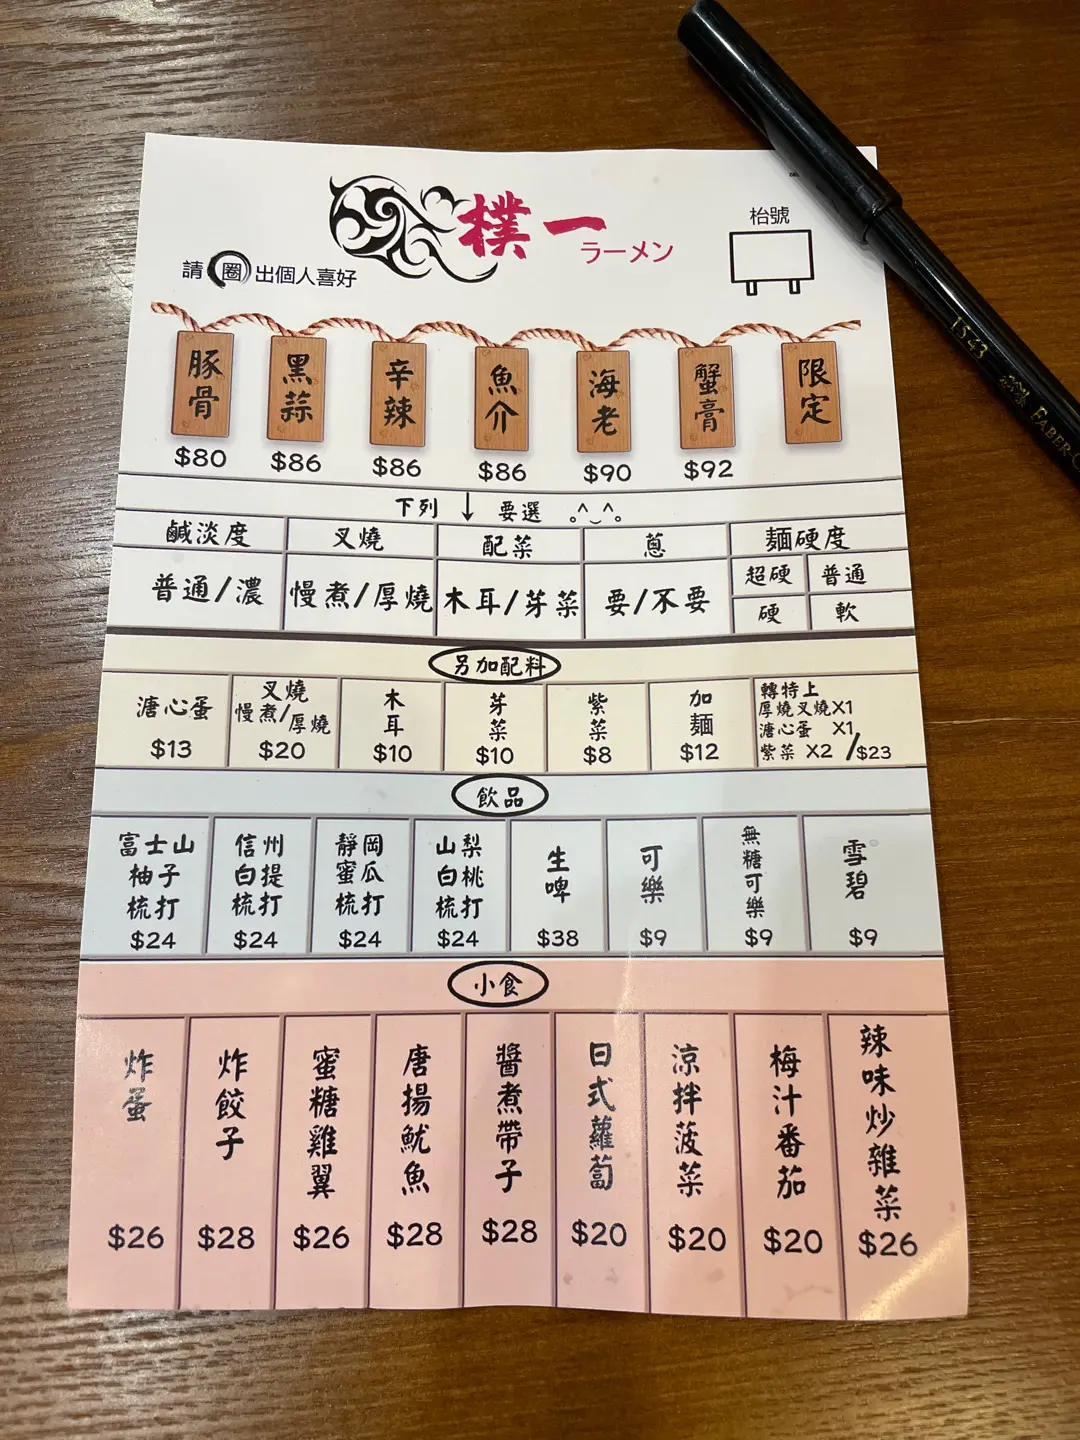 樸一
ラーメン
枱號
請圈出個人喜好
豚骨 黑蒜 辛辣 魚介 海老 蟹膏 限定
$80 $86 $86 $86 $90 $92
下列↓要選 。^‿^。
鹹淡度 叉燒 配菜 蔥 麵硬度
普通/濃 慢煮/厚燒 木耳/芽菜 要/不要 超硬 普通
硬 軟
另加配料
溏心蛋 $13
叉燒
慢煮/厚燒
$20
木耳 $10
芽菜 $10
紫菜 $8
加麵 $12
轉特上
厚燒叉燒X1
溏心蛋 X1
紫菜 X2 /$23
飲品
富士山
柚子
梳打
$24
信州
白提
梳打
$24
靜岡
蜜瓜
梳打
$24
山梨
白桃
梳打
$24
生啤 $38
可樂 $9
無糖可樂 $9
雪碧 $9
小食
炸蛋 $26
炸餃子 $28
蜜糖雞翼 $26
唐揚魷魚 $28
醬煮帶子 $28
日式蘿蔔 $20
涼拌菠菜 $20
梅汁番茄 $20
辣味炒雜菜 $26
1543 FABER-C